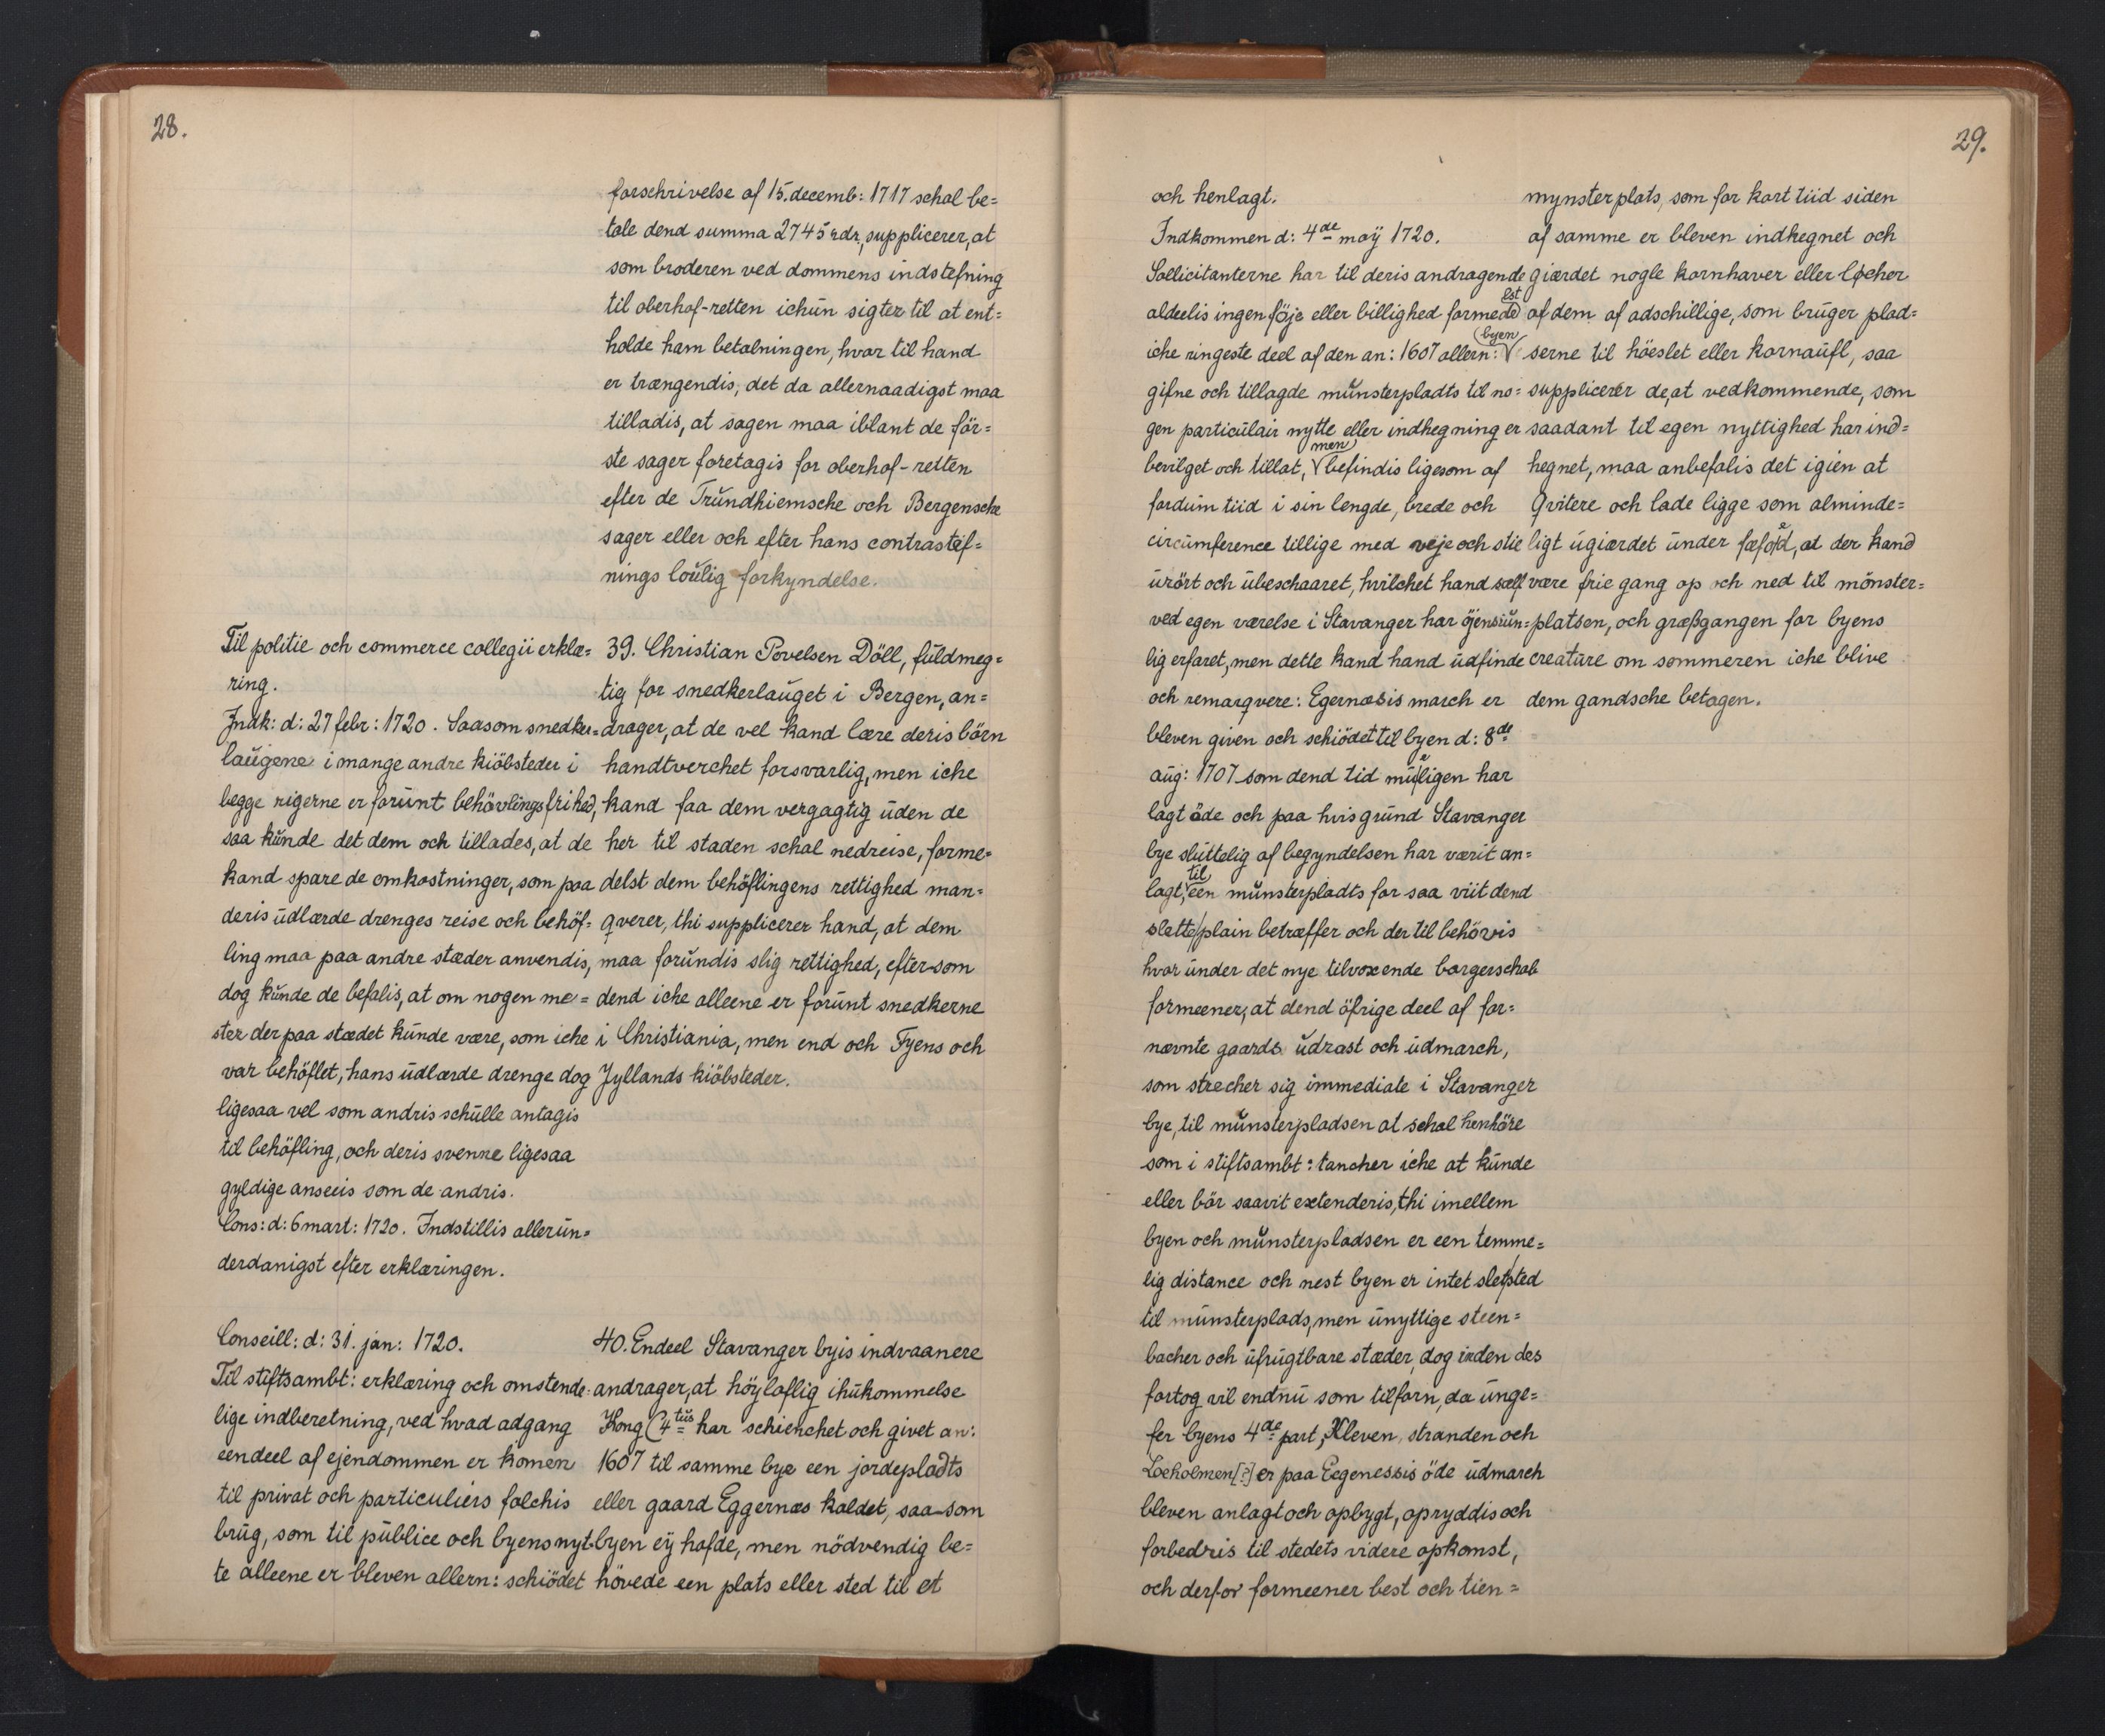 28.
forschrivelse af 15. decemb: 1717 schal be=
tale dend summa 2745 rdr, supplicerer, at
som broderen ved dommens indstefning
til oberhof-retten ichŭn sigter til at ent=
holde ham betalningen, hvor til hand
er trængendis, det da allernaadigst maa
tilladis, at sagen maa iblant de för=
ste sager foretagis for oberhof-retten
efter de Trŭndhiemsche och Bergensche
sager eller och efter hans contrastef=
nings loŭlig forkyndelse.
Til politie och commerce collegii erklæ=
ring.
Indk: d: 27 febr: 1720. Saasom snedker=
laŭgene i mange andre kiöbsteder i
begge rigerne er forŭnt behövlings frihed,
saa kŭnde det dem och tillades, at de
kand spare de omkostninger, som paa
deris ŭdlærde drenges reise och behöf=
ling maa paa andre stæder anvendis,
dog kŭnde de befalis, at om nogen me=
ster der paa stædet kŭnde være, som iche
var behöflet, hans ŭdlærde drenge dog
ligesaa vel som andris schŭlle antagis
til behöfling, och deris svenne ligesaa
gyldige anseeis som de andris.
Cons: d: 6 mart: 1720. Indstillis allerŭn=
derdanigst efter erklæringen.
39. Christian Povelsen Döll, fŭldmeg=
tig for snedkerlaŭget i Bergen, an=
drager, at de vel kand lære deris börn
handtverchet forsvarlig, men iche
kand faa dem vergagtig ŭden de
her til staden schal nedreise, forme=
delst dem behöflingens rettighed man=
qverer, thi supplicerer hand, at dem
maa forŭndis slig rettighed, efter som
dend iche alleene er forŭnt snedkerne
i Christiania, men end och Fyens och
Jyllands kiöbsteder.
Conseill: d: 31. jan: 1720.
Til stiftsambt: erklæring och omstende=
lige indberetning, ved hvad adgang
eendeel af ejendommen er komen
til privat och particuliers folchis
brŭg, som til pŭblice och byens nyt=
te alleene er bleven allern: schiödet
40. Endeel Stavanger byis indvaanere
andrager, at höyloflig ihŭkommelse
Kong C 4 tŭs har schienchet och givet an:
1607 til samme bye een jordepladts
eller gaard Eggernæs kaldet, saa som
byen eÿ hafde, men nödvendig be=
hövede een plats eller sted til et
29.
och henlagt.
Indkommen d: 4de maÿ 1720.
Sollicitanterne har til deris andragende
aldeelis ingen föje eller billighed formedelst
iche ringeste deel af den an: 1607 allern: byen
gifne och tillagde mŭnsterpladts til no=
gen particŭlair nytte eller indhegning er
bevilget och tillat, men befindis ligesom af
fordŭm tiid i sin lengde, brede och
circŭmference tillige med veje och stie
ŭrört och ŭbeschaaret, hvilchet hand sælf
ved egen værelse i Stavanger har öjensiŭn=
lig erfaret, men dette kand hand ŭdfinde
och remarqvere: Egernæsis march er
bleven given och schiödet til byen d: 8de
aŭg: 1707 som dend tid mŭeligen har
lagt öde och paa hvis grŭnd Stavanger
bye slŭttelig af begyndelsen har værit an=
lagt, til een mŭnsterpladts for saa viit dend
slette plain betræffer och der til behövis
hvor ŭnder det nye tilvoxende borgerschab
formeener, at dend öfrige deel af for=
nævnte gaards ŭdrast och ŭdmarch,
som strecher sig immediate i Stavanger
bye, til mŭnsterpladsen at schal henhöre
som i stiftsambt: tancher iche at kŭnde
eller bör saavit extenderis, thi imellem
byen och mŭnsterpladsen er een temme=
lig distance och nest byen er intet slet sted
til mŭnsterplads, men ŭnyttige steen=
bacher och ŭfrŭgtbare stæder, dog inden des
fortog vil endnŭ som tilforn, da ŭnge=
fer byens 4de part, Kleven, stranden och
Zoeholmen [?] er paa Eegenessis öde ŭdmarch
bleven anlagt och opbygt, opryddis och
forbedris til stedets videre opkomst,
och derfor formeener best och tien=
mynsterplats, som for kort tiid siden
af samme er bleven indhegnet och
giærdet nogle kornhaver eller løcher
af dem af adschillige, som brŭger plad=
serne til höeslet eller kornaŭfl, saa
supplicerer de, at vedkommende, som
saadant til egen nyttighed har ind=
hegnet, maa anbefalis det igien at
qvitere och lade ligge som alminde=
ligt ŭgiærdet ŭnder fæfoed, at der kand
være frie gang op och ned til mönster=
platsen, och græßgangen for byens
creatŭre om sommeren iche blive
dem gandsche betagen.